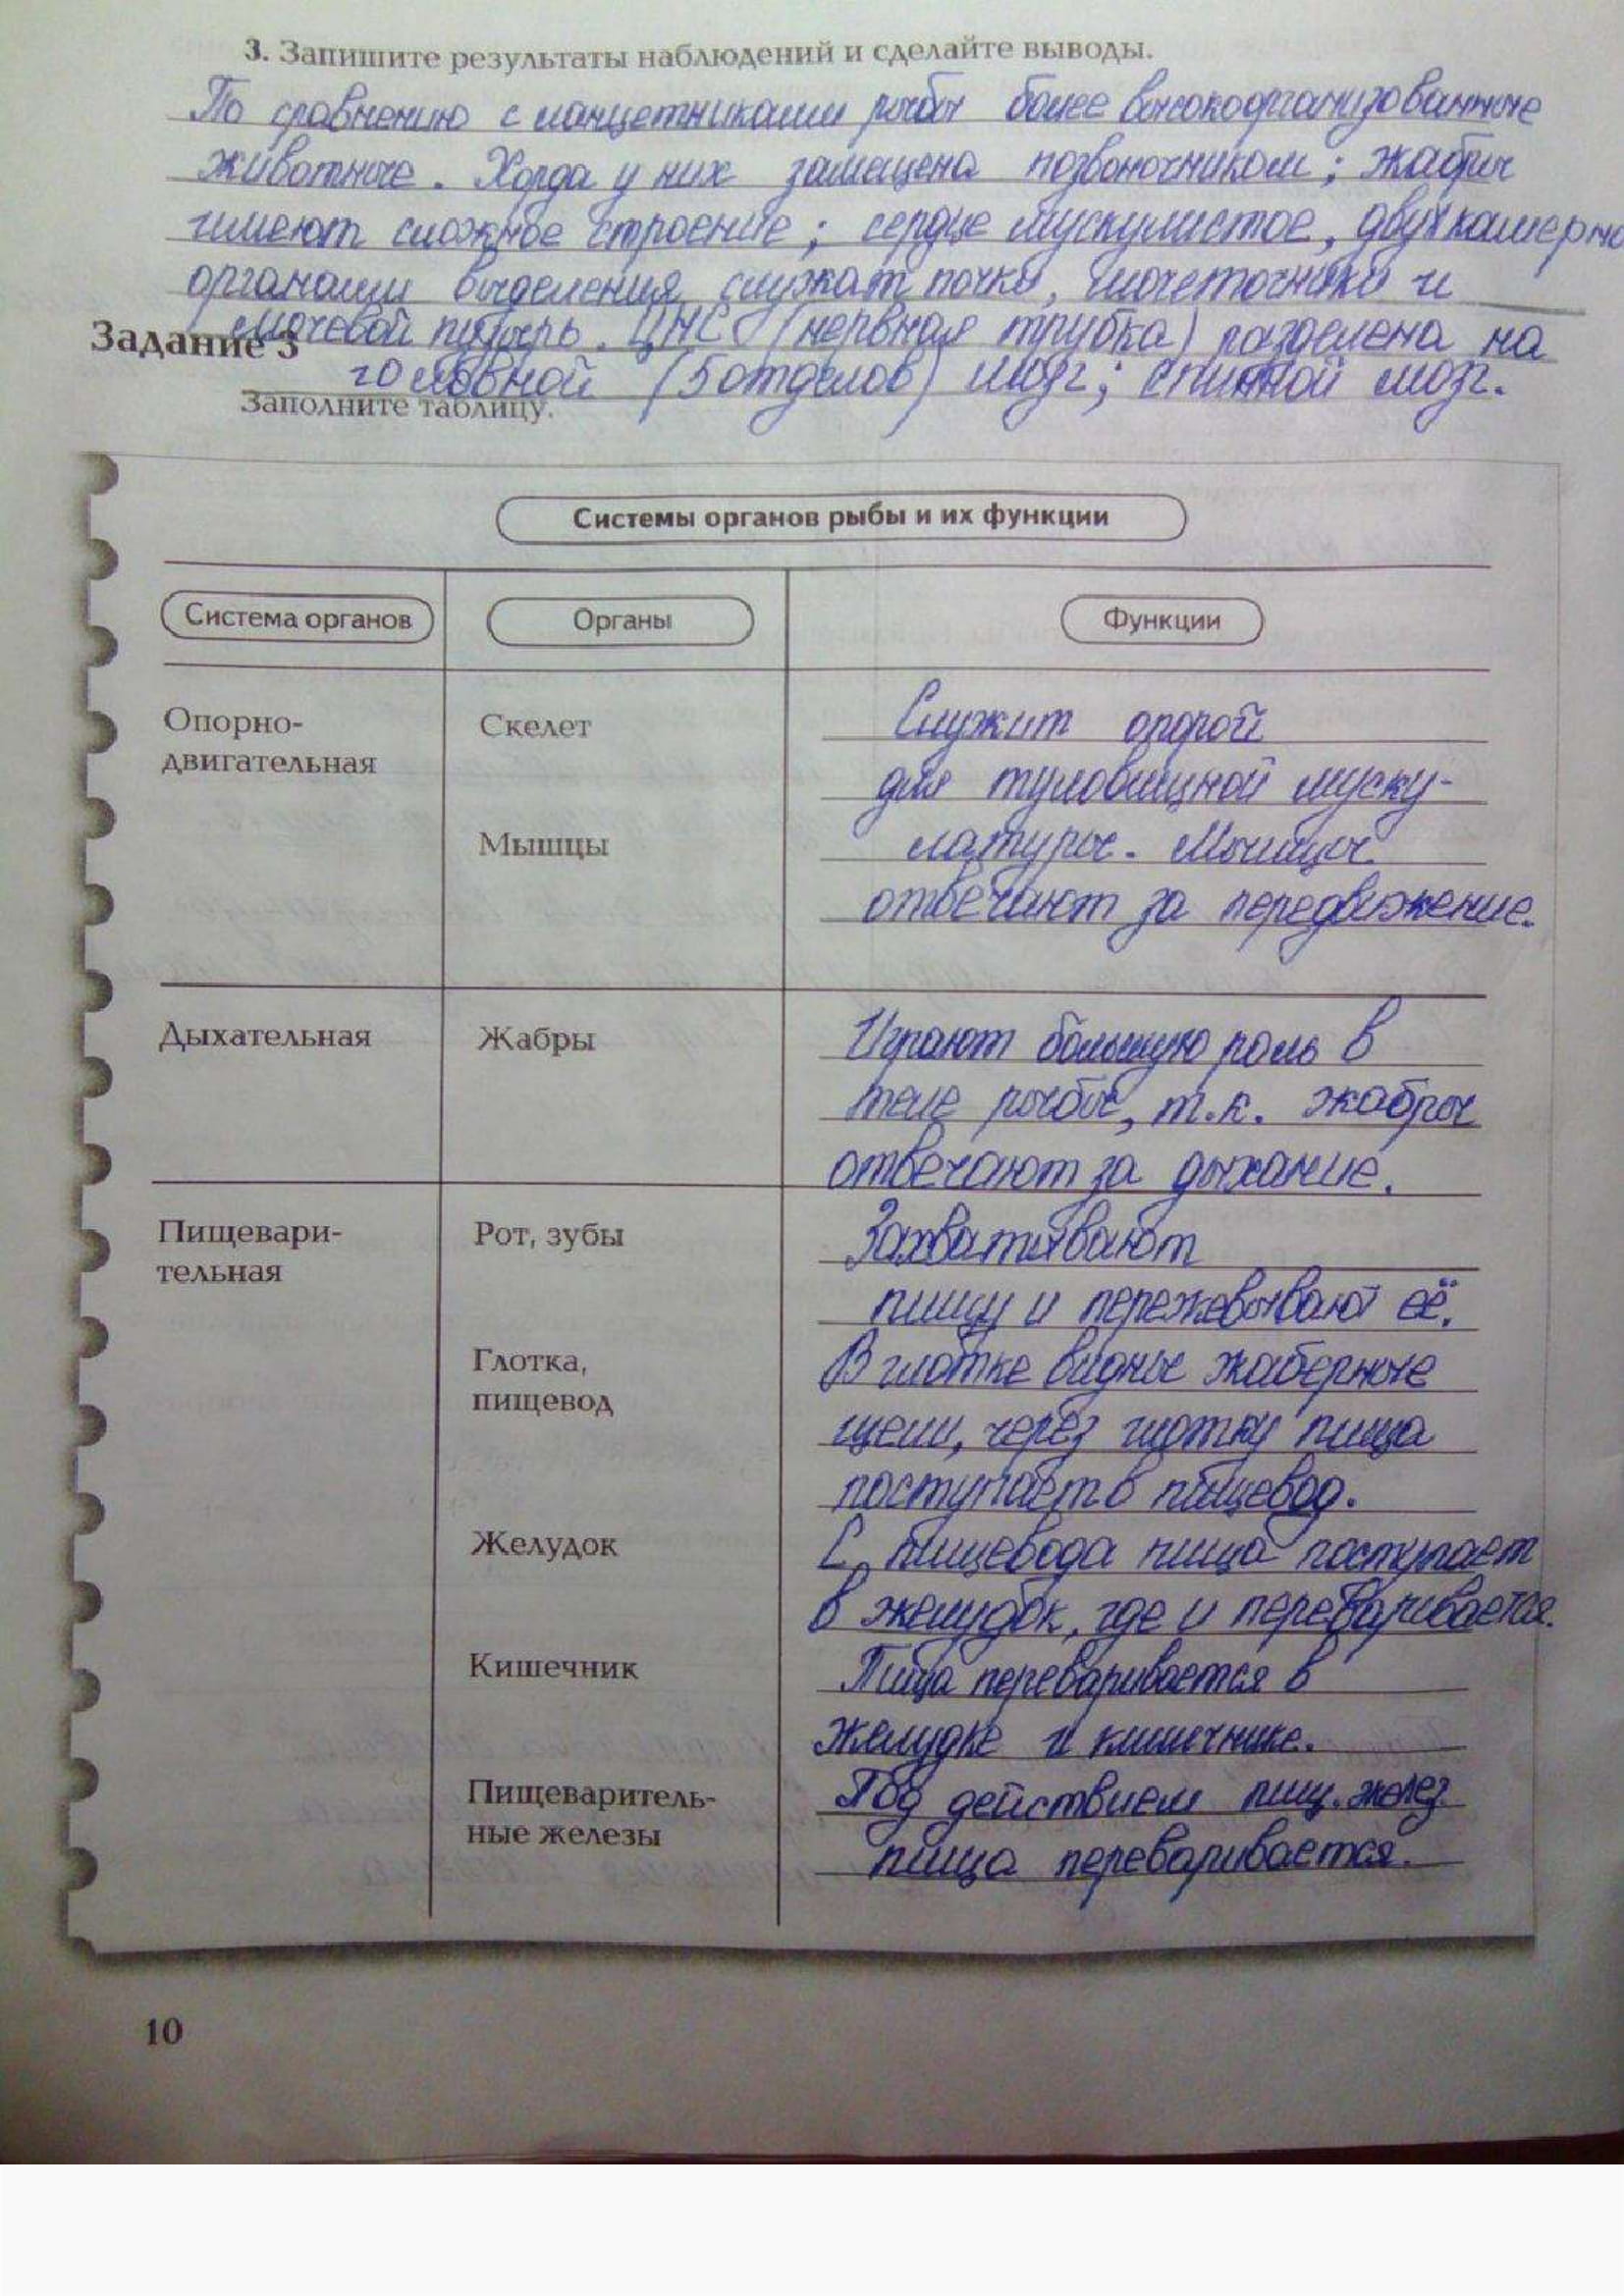 3. Запишите результаты наблюдений и сделайте выводы.
По сравнению с ланцетниками рыбы более высокоорганизованные
животные. Хорда у них замещена позвоночником; жабры
имеют сложное строение; сердце мускулистое, двухкамерно
органами выделения служат почки, мочеточники и
мочевой пузырь. ЦНС (нервная трубка) разделена на
Задание 3
головной (5 отделов) мозг; спинной мозг.
Заполните таблицу.
Системы органов рыбы и их функции
Система органов Органы Функции
Опорно- Скелет Служит опорой
двигательная для туловищной муску-
Мышцы латуры. Мышцы
отвечают за передвижение.
Дыхательная Жабры Играют большую роль в
теле рыбы, т.к. жабры
отвечают за дыхание.
Пищевари- Рот, зубы Захватывают
тельная пищу и пережевывают её.
Глотка, В глотке видны жаберные
пищевод щели, через глотку пища
поступает в пищевод.
Желудок С пищевода пища поступает
в желудок, где и переваривается.
Кишечник Пища переваривается в
желудке и кишечнике.
Пищеваритель- Под действием пищ. желез
ные железы пища переваривается.
10